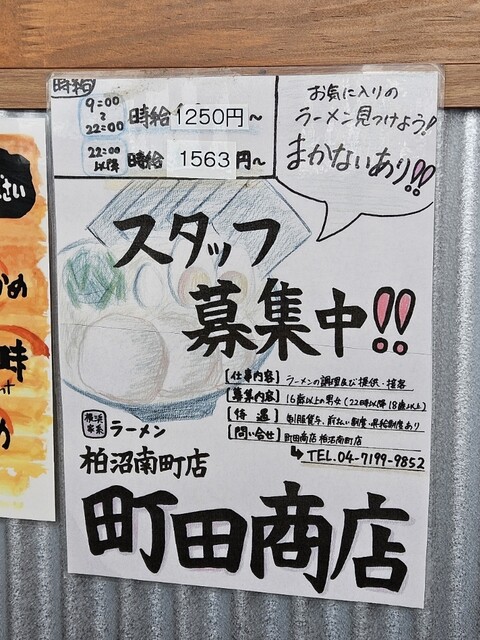 時給
9:00
〜
22:00
時給 1250円〜
22:00
以降
時給 1563円〜
お気に入りの
ラーメン見つけよう!
まかないあり!!
スタッフ
募集中!!
[仕事内容] ラーメンの調理及び提供・接客
[募集内容] 16歳以上の男女(22時以降18歳以上)
[待遇] 制服貸与、前払い制度・昇給制度あり
[問い合せ] 町田商店 柏沼南町店
↳TEL.04-7199-9852
横浜
家系
ラーメン
柏沼南町店
町田商店
ださい
め
時